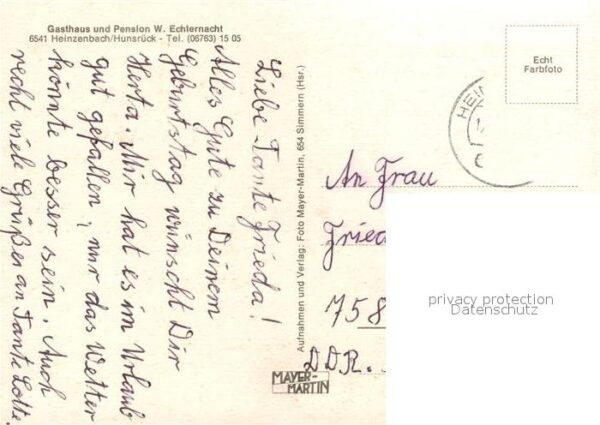 Gasthaus und Pension W. Echternacht
6541 Heinzenbach/Hunsrück - Tel. (06763) 15 05
Liebe Tante Frieda!
Alles Gute zu Deinem
Geburtstag wünscht Dir
Herta. Mir hat es im Urlaub
gut gefallen, nur das Wetter
könnte besser sein. Auch
recht viele Grüße an Tante Lotte.
Aufnahmen und Verlag: Foto Mayer-Martin, 654 Simmern (Hsr.)
MAYER-
MARTIN
Echt
Farbfoto
HEIN
An Frau
Fried
758
DDR.
privacy protection
Datenschutz